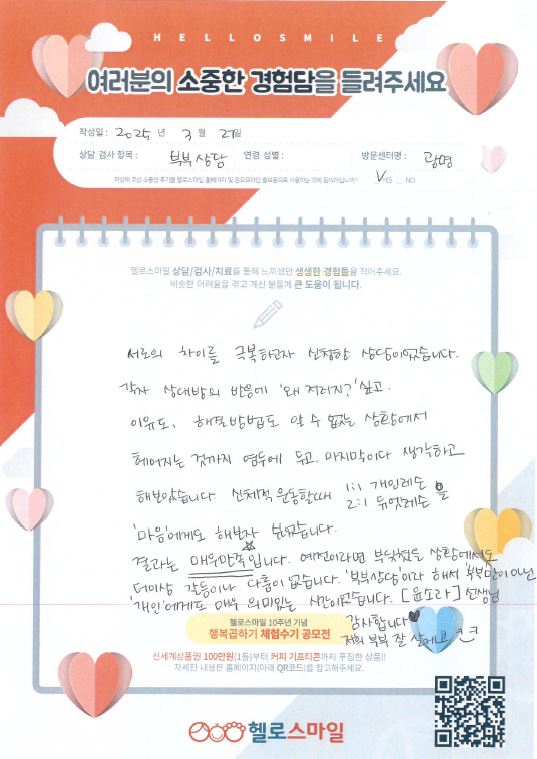 HELLOSMILE
여러분의 소중한 경험담을 들려주세요
작성일 : 2025 년 3 월 21일
상담 검사 항목 : 부부 상담 연령 성별 : 방문센터명 : 광명
작성해 주신 소중한 후기를 헬로스마일 홈페이지 및 온오프라인 홍보용으로 사용하는 것에 동의하십니까? V YES NO
헬로스마일 상담/검사/치료를 통해 느끼셨던 생생한 경험들을 적어주세요.
비슷한 어려움을 겪고 계신 분들께 큰 도움이 됩니다.
서로의 차이를 극복하고자 신청한 상담이었습니다.
각자 상대방의 반응에 '왜 저러지?' 싶고.
이유도, 해결방법도 알 수 없는 상황에서
헤어지는 것까지 염두에 두고, 마지막이다 생각하고
해보았습니다 신체적 운동할때 1:1 개인레슨
2:1 듀엣레슨 을
'마음'에게도 해보자 싶었습니다.
결과는 매우만족☆입니다. 예전이라면 부딪혔을 상황에서도
더이상 갈등이나 다툼이 없습니다. '부부상담'이라 해서 '부부'만이 아닌
'개인'에게도 매우 의미있는 시간이었습니다. [윤소라] 선생님
감사합니다♥
저희 부부 잘 살게요
헬로스마일 10주년 기념
행복곱하기 체험수기 공모전
신세계상품권 100만원(1등)부터 커피 기프티콘까지 푸짐한 상품!!
자세한 내용은 홈페이지(아래 QR코드)를 참고해주세요.
헬로스마일